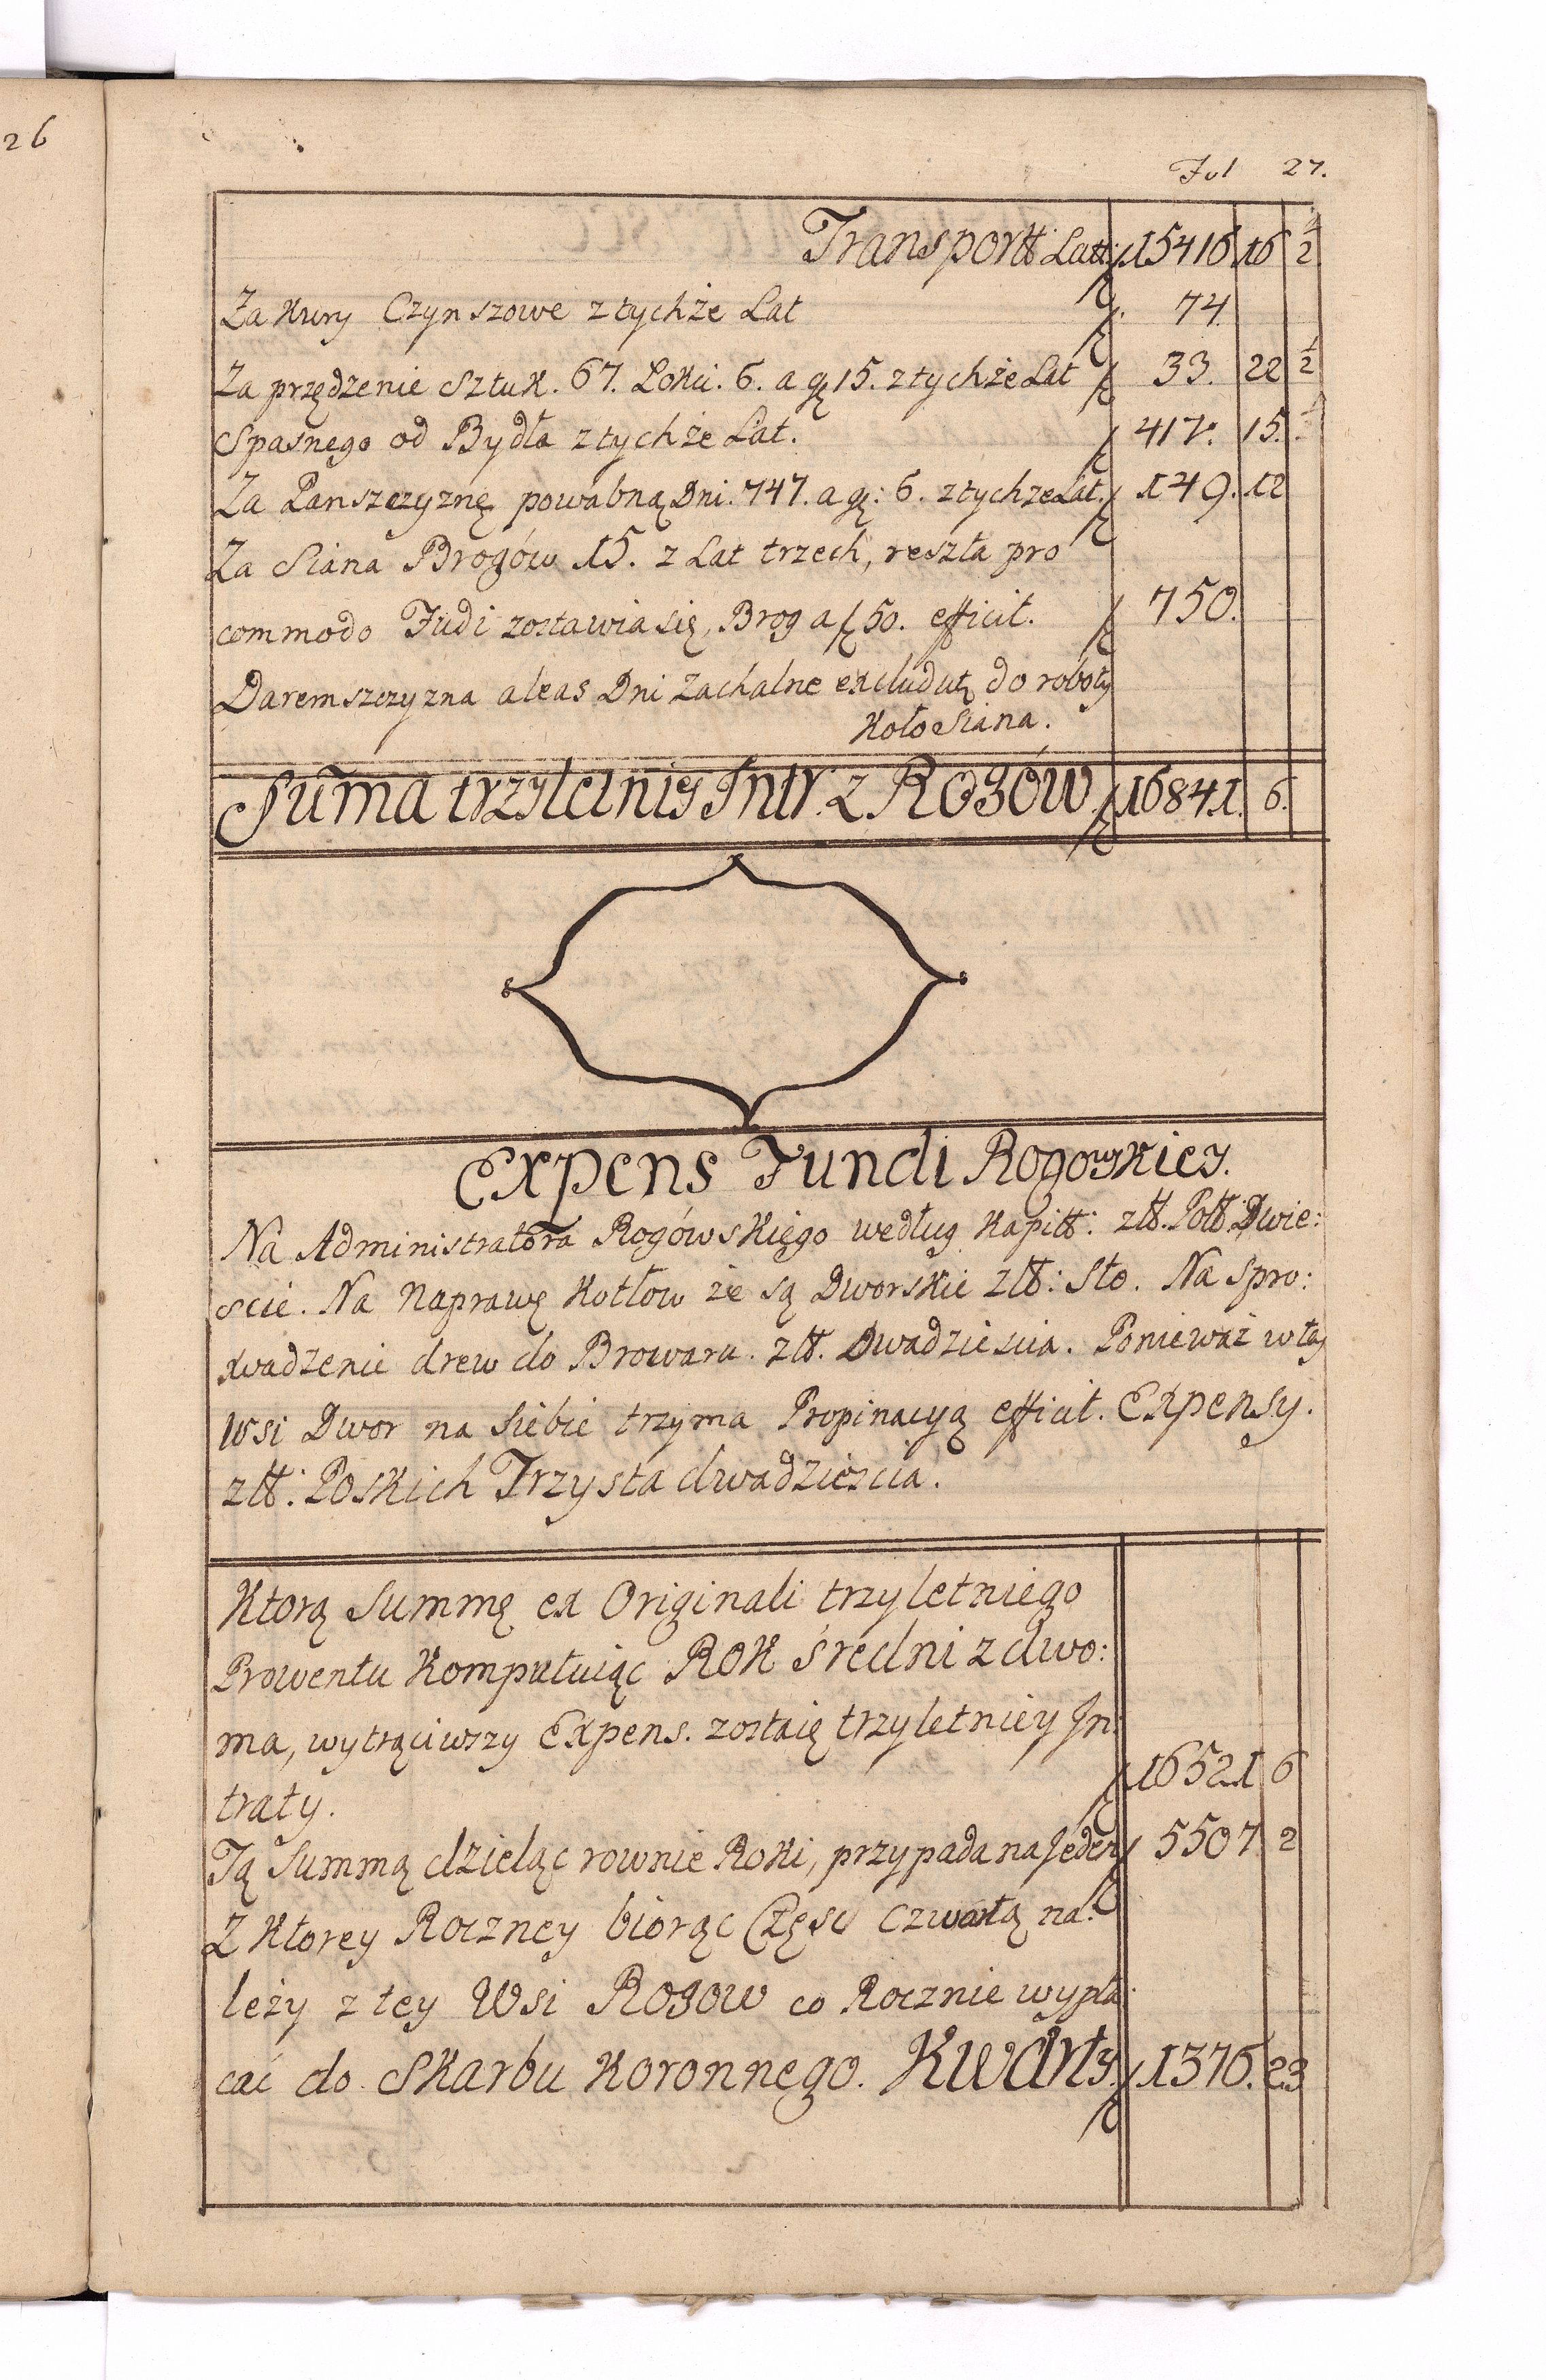 26
Fol 27.
Transportt: Latt: 15416 16 1/2
Za Kury Czynszowe z tychże Lat 74.
Za przędzenie Sztuk. 67. Łokci. 6. a gę 15. z tychże Lat 33. 22 1/2
Spasnego od Bydła z tychże Lat. 417. 15.
Za Panszczyznę powabną Dni. 747. a gę: 6. z tychże Lat. 149. 12
Za Siana Brogów 15. z Lat trzech, reszta pro
commodo Fudi zostawia się, Brog a 50. efficit. 750.
Daremszczyzna aleas Dni Zachalne excludutę do roboty
Koło Siana.
Suma trzyletniey Intr. z Rogów. 16841. 6.
Expens Fundi Rogowskiey.
Na Administratora Rogówskięgo według Kapitt: ztt. Poltt: Dwie:
scie. Na Naprawę Kotłow że są Dworskie ztt: Sto. Na spro:
wadzenie drew do Browaru. ztt. Dwadziescia. Ponieważ w tey
Wsi Dwor na siebie trzyma Propinacyą efficit. Expensy.
ztt: Poskich Trzysta dwadzieścia.
Ktorą Summę ex Originali trzyletniego
Prowentu Komputuiąc Rok średni z dwo:
ma, wytrąciwszy Expens. zostaię trzyletniey In:
traty. 16521 6
Tą Summą dzieląc rownie Roki, przypada na Jeden 5507 2
Z Ktorey Roczney biorąc Część Czwartą na:
leży z tey Wsi Rogow co Rocznie wypła:
cać do Skarbu Koronnego. Kwarty. 1376. 23